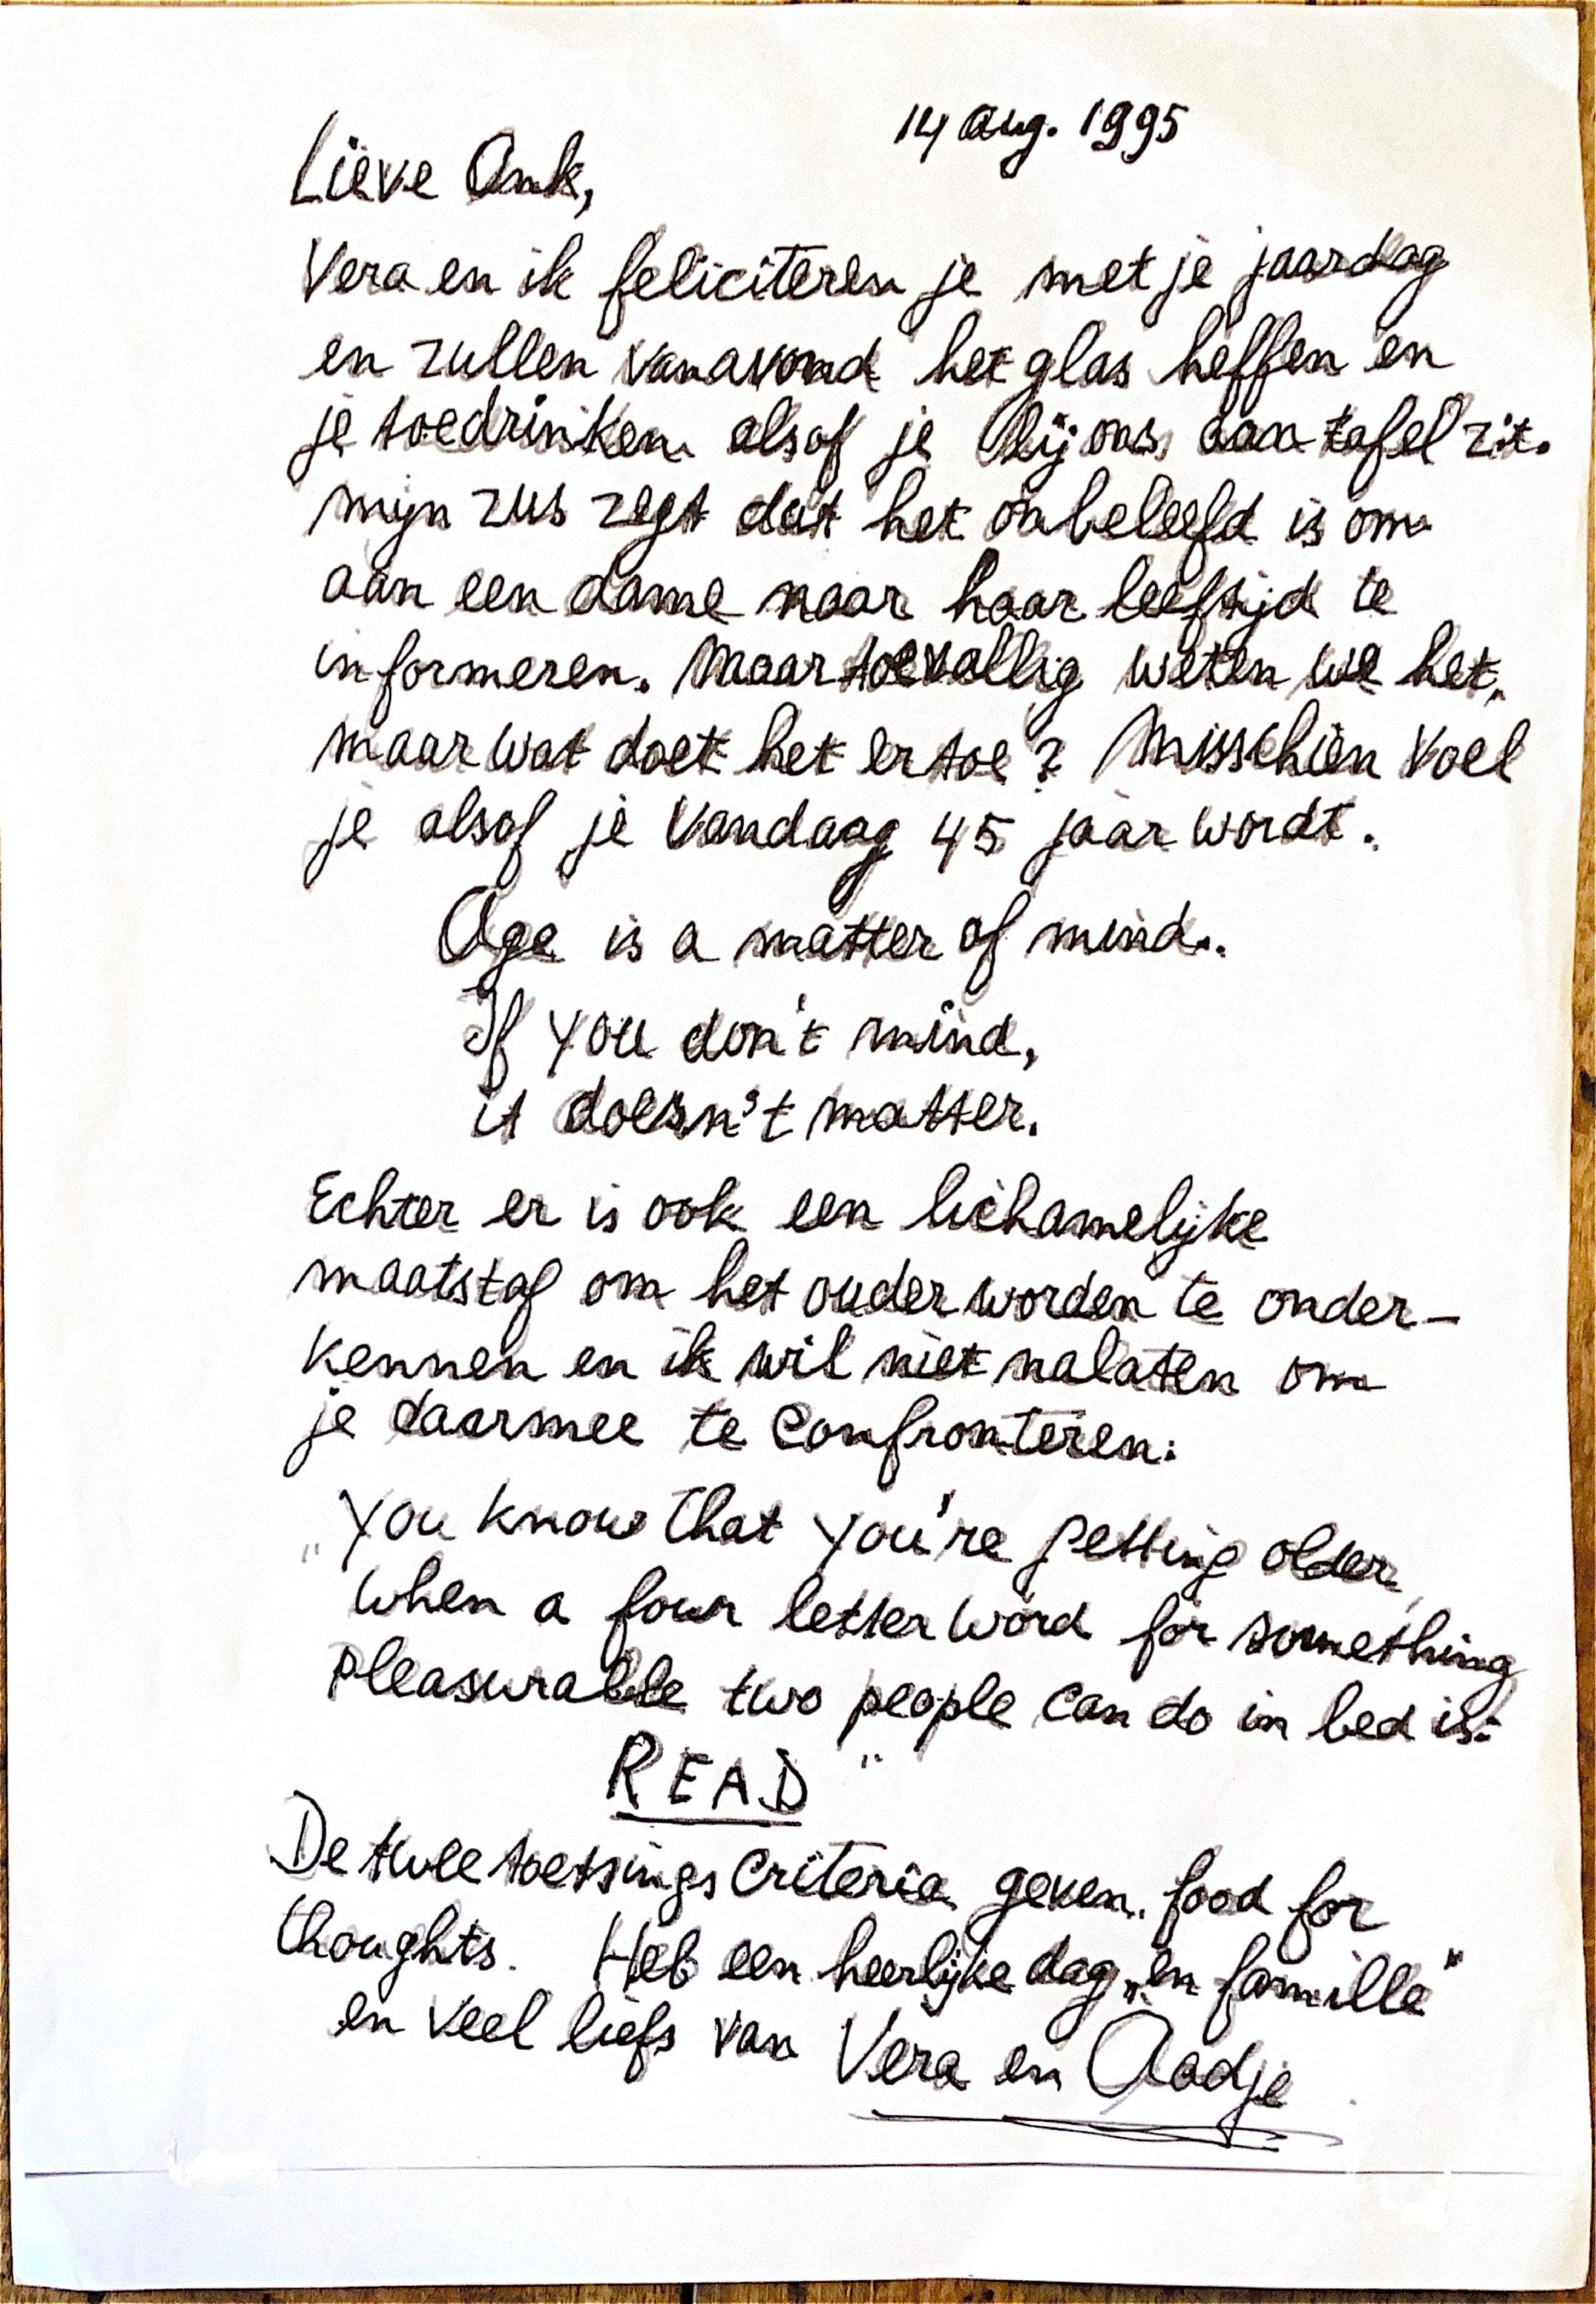 14 aug. 1995
Lieve Ank,
Vera en ik feliciteren je met je jaardag
en zullen vanavond het glas heffen en
je toedrinken alsof je bij ons aan tafel zit.
Mijn zus zegt dat het onbeleefd is om
aan een dame naar haar leeftijd te
informeren. Maar toevallig weten we het,
maar wat doet het er toe? Misschien voel
je alsof je vandaag 45 jaar wordt.
Age is a matter of mind..
If you don't mind,
it doesn't matter.
Echter er is ook een lichamelijke
maatstaf om het ouder worden te onder-
kennen en ik wil niet nalaten om
je daarmee te confronteren:
"You know that you're getting older,
when a four letter word for something
pleasurable two people can do in bed is:
READ"
De twee toetsings criteria geven food for
thoughts. Heb een heerlijke dag „en famille"
en veel liefs van Vera en Aadje